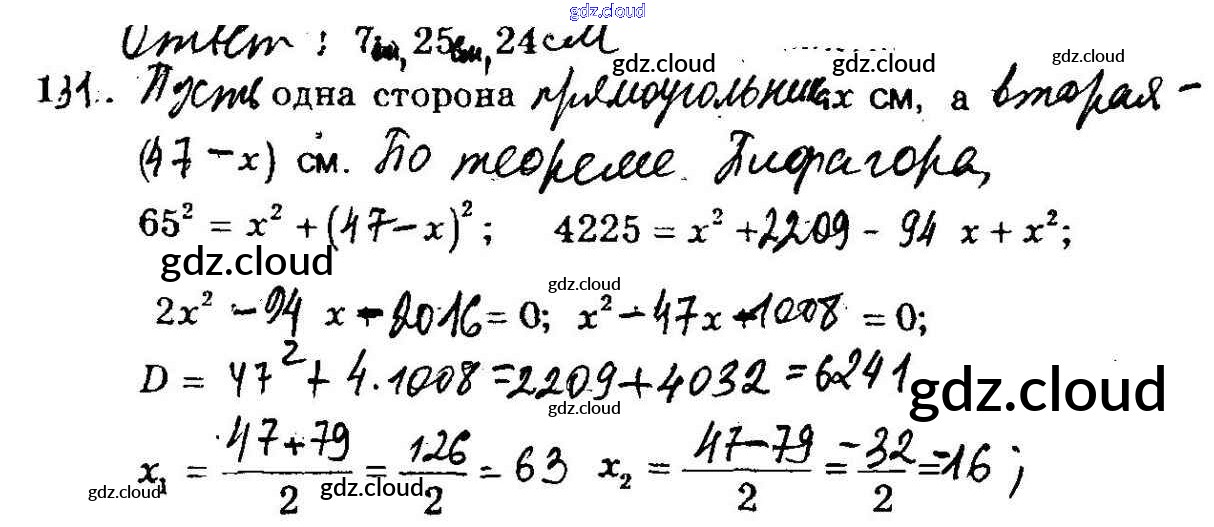 gdz.cloud
Ответ: 7см, 25см, 24см
gdz.cloud gdz.cloud
131. Пусть одна сторона прямоугольника х см, а вторая -
(47 - x) см. По теореме Пифагора,
65² = x² + (47 - x)²; 4225 = x² + 2209 - 94 x + x²;
gdz.cloud gdz.cloud
2x² - 94 x - 2016 = 0; x² - 47x - 1008 = 0;
D = 47² + 4·1008 = 2209 + 4032 = 6241
gdz.cloud gdz.cloud
x₁ = (47+79)/2 = 126/2 = 63 x₂ = (47-79)/2 = -32/2 = -16;
gdz.cloud gdz.cloud